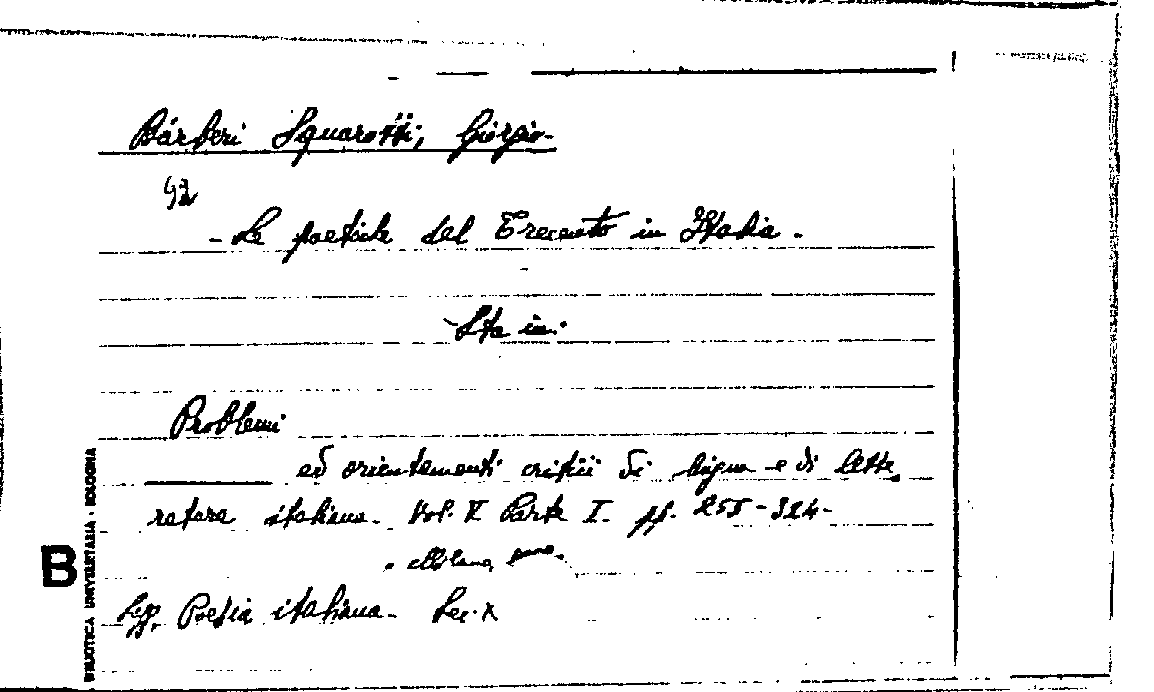 Bárberi Squarotti, Giorgio-
92
- Le poetiche del Trecento in Italia -
Sta in:
Problemi
ed orientamenti critici di lingua e di lette
ratura italiana - Vol. V Parte I - pp. 255-324-
Milano,
Poesia italiana - Sec. X
BIBLIOTECA UNIVERSITARIA - BOLOGNA
B